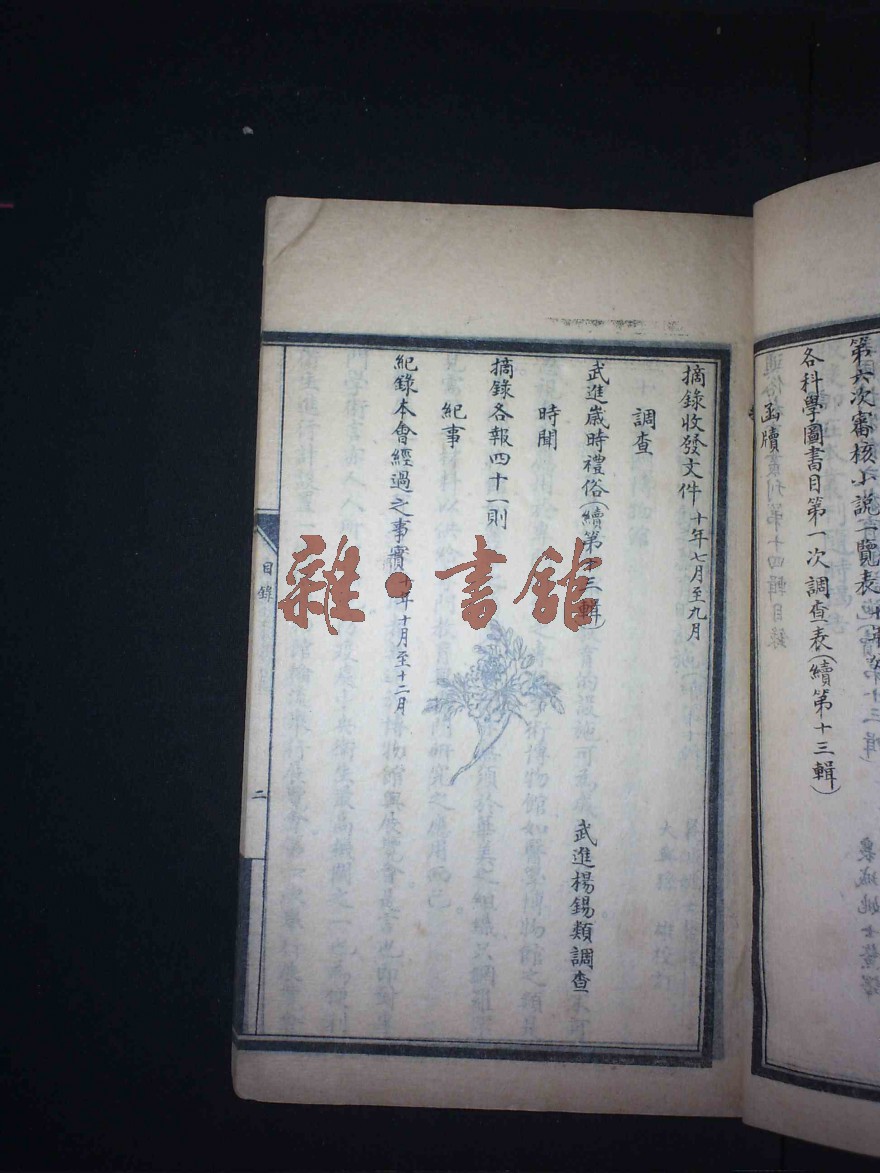 第六次審核小說一覽表
各科學圖書目第一次調查表(續第十三輯)
函牘
摘錄收發文件 十年七月至九月
調查
武進歲時禮俗(續第十三輯) 武進楊錫類調查
時聞
摘錄各報四十一則
紀事
紀錄本會經過之事實 十年十月至十二月
目錄
二
雜·書館